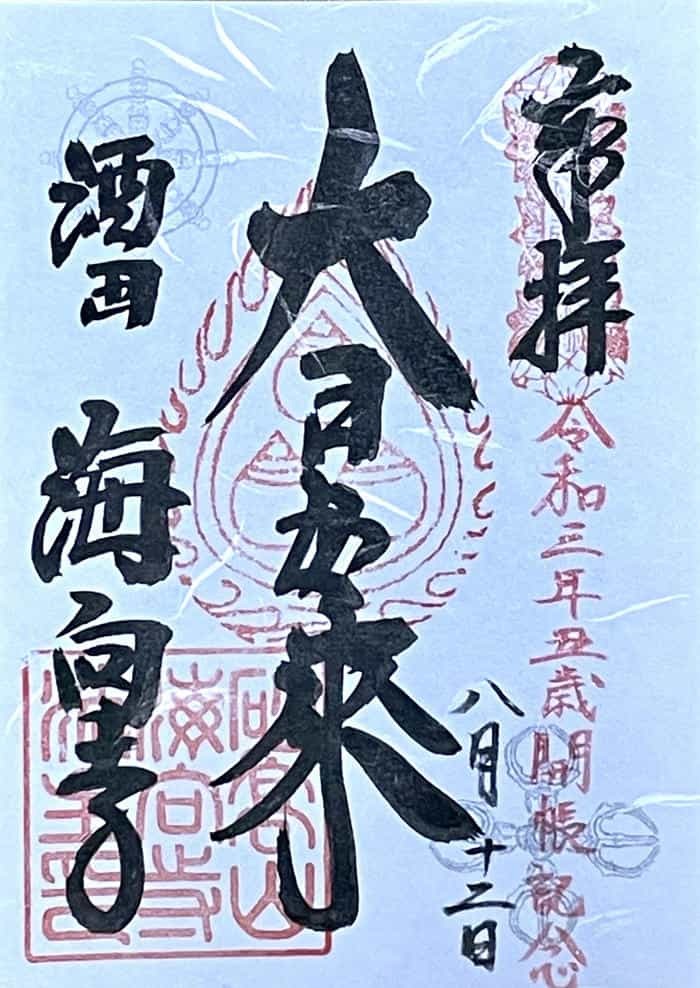 奉拝
令和三年丑歳開帳記念
八月十二日
大日如来
酒田 海向寺